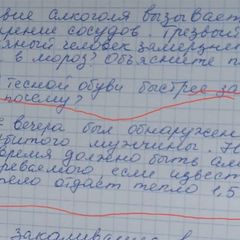 вие алкоголя вызывает
рение сосудов. Трезвый
яный человек замерзнет
в мороз? Объясните п
тесной обуви быстрее за
почему?
с вечера был обнаружен
битого мужчины. Н
время должно быть
реваемого, если извест
тело отдаст тепло 1,5
закаливание в